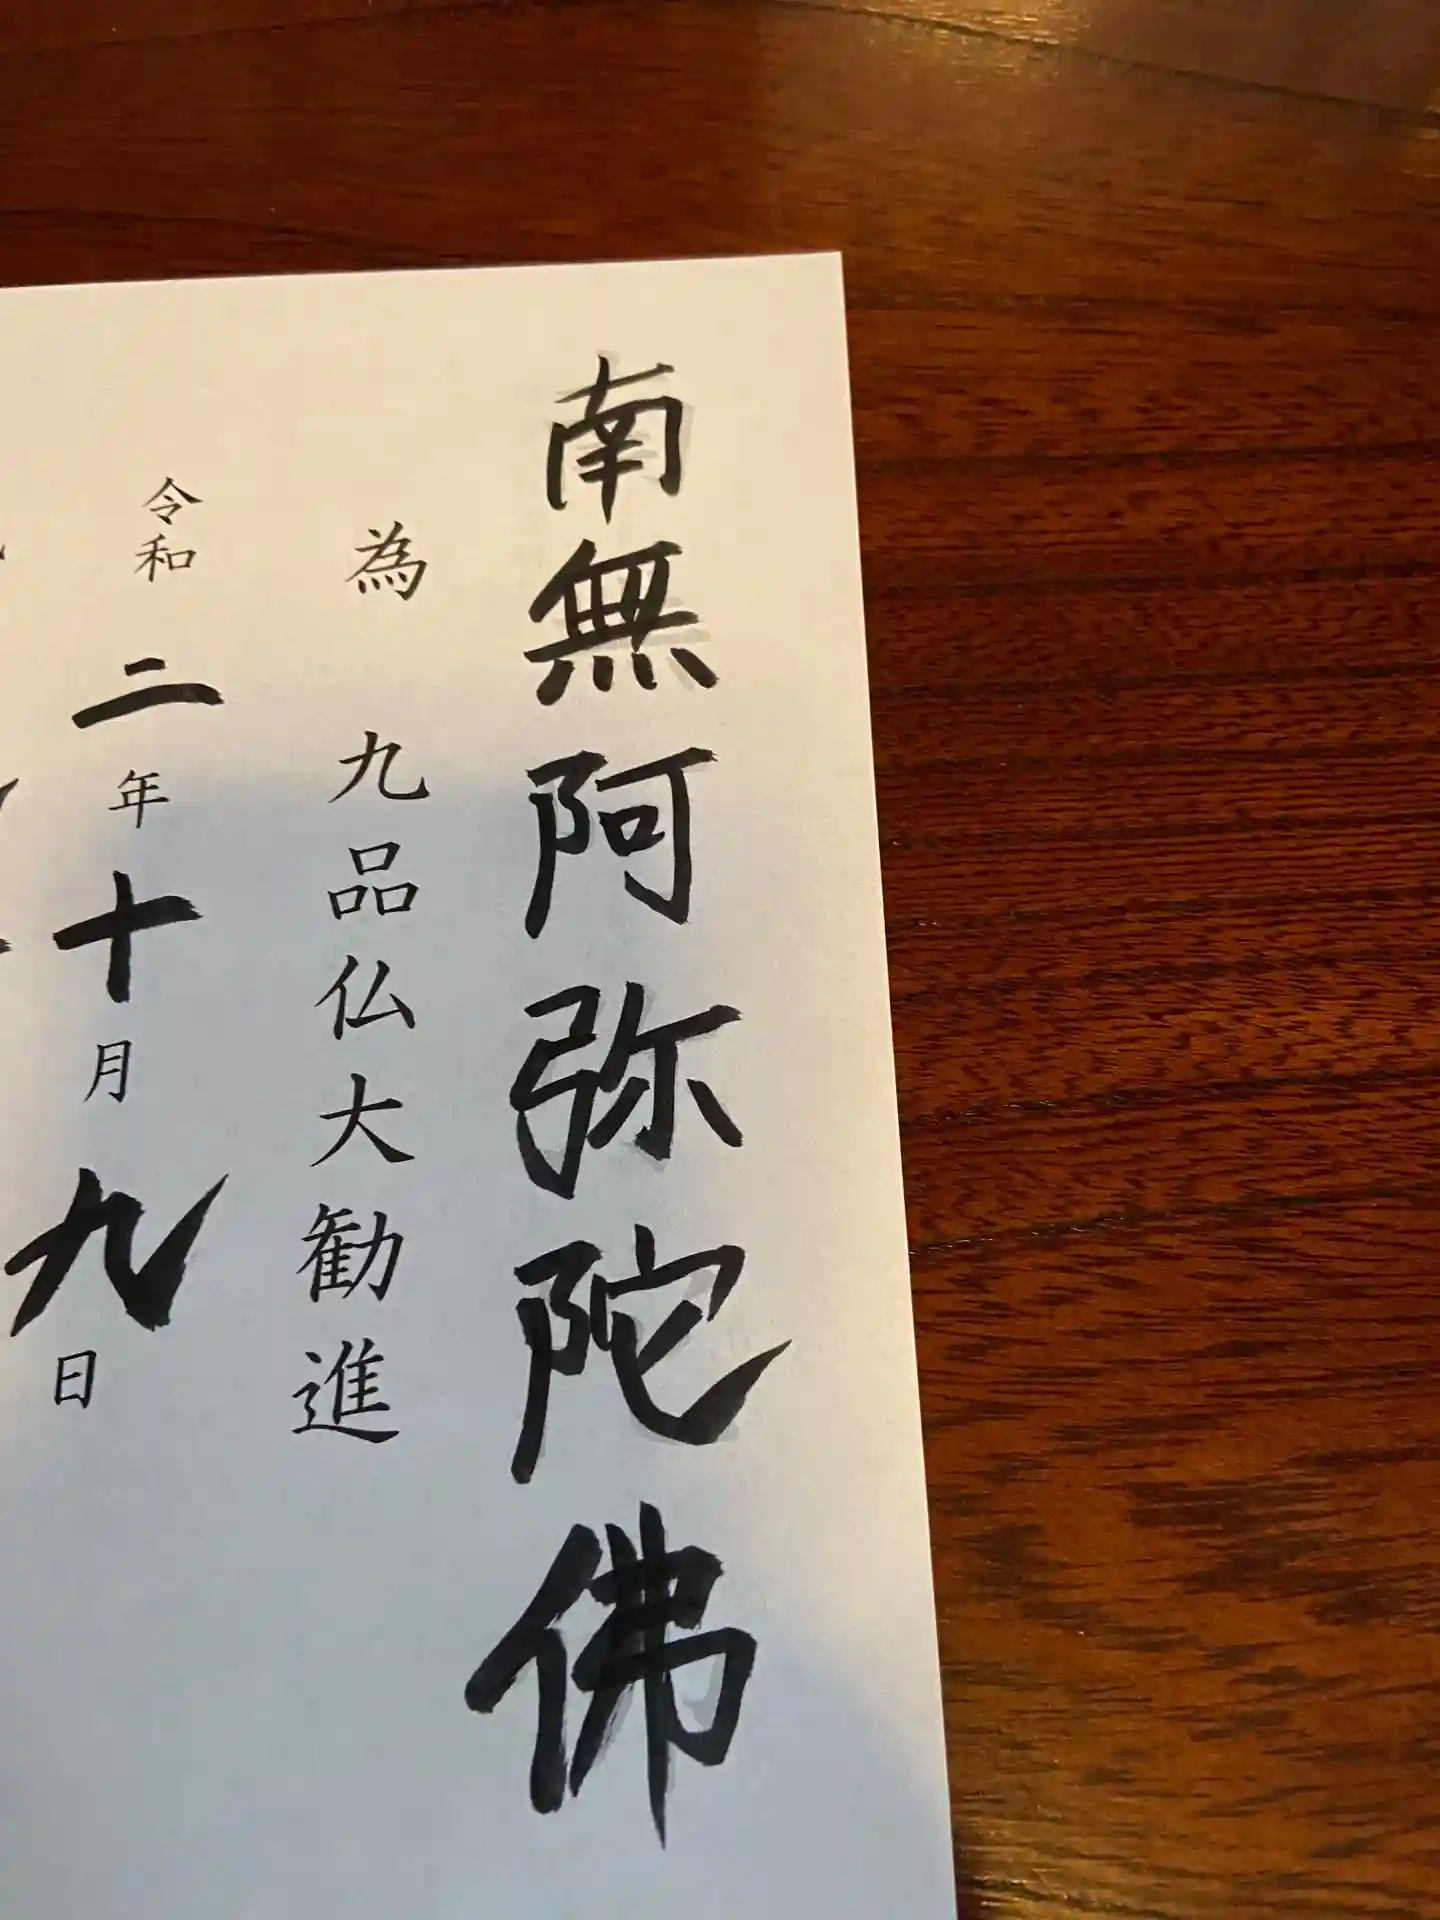 南無阿弥陀佛
為 九品仏大勧進
令和 二年 十月 九日